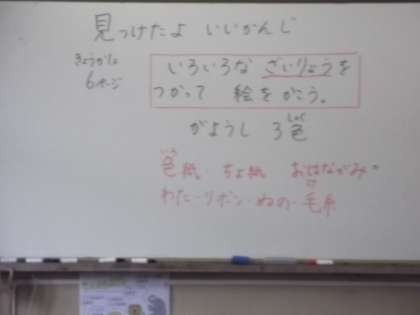 見つけたよ いいかんじ
きょうかしょ
6ページ
いろいろな ざいりょうを
つかって 絵をかこう。
がようし 3色
しょく
いろ
色紙・ちよ紙 おはながみ・
わた・リボン・ぬの・毛糸
け